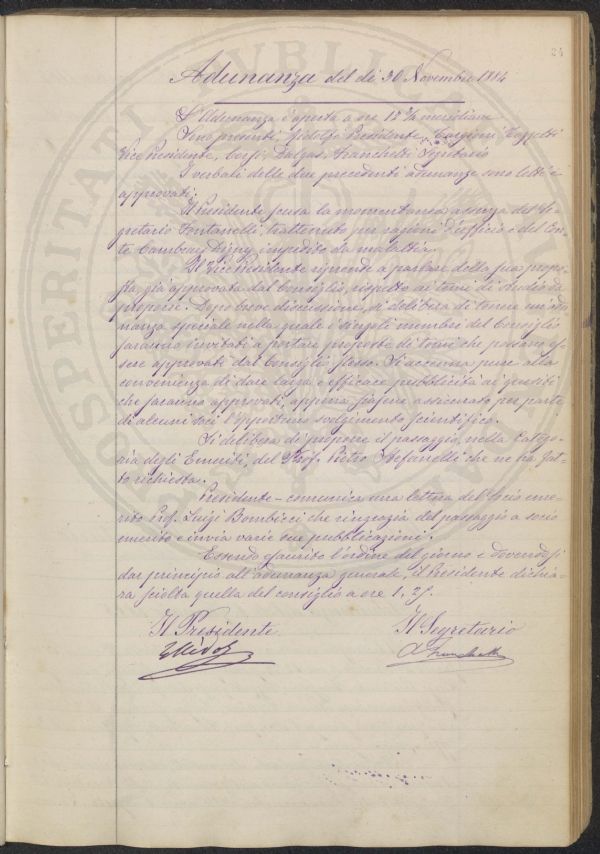 24
Adunanza del dì 30 Novembre 1884
L'Adunanza è aperta a ore 12 3/4 meridiane
Sono presenti: Ridolfi Presidente, Targioni Tozzetti
Vice Presidente, Corsi, Dalgas, Franchetti Segretario
I verbali delle due precedenti adunanze sono letti e
approvati.
Il Presidente scusa la momentanea assenza del Se-
gretario Fontanelli, trattenuto per ragione d'ufficio e del Con-
te Cambray Digny impedito da malattia.
Il Vice Presidente riprende a parlare della sua propo-
sta, già approvata dal Consiglio, rispetto ai temi di studio da
proporre. Dopo breve discussione, si delibera di tenere un'adu-
nanza speciale nella quale i singoli membri del Consiglio
saranno invitati a portare proposte di temi che possano es-
sere approvati dal Consiglio stesso. Si accenna pure alla
convenienza di dare larga e efficace pubblicità ai quesiti
che saranno approvati, appena siasene assicurato per parte
di alcuni soci l'opportuno svolgimento scientifico.
Si delibera di proporre il passaggio, nella Catego-
ria degli Emeriti, del Prof. Pietro Stefanelli che ne ha fat-
to richiesta.
Presidente - comunica una lettera del Socio eme-
rito Prof. Luigi Bombicci che ringrazia del passaggio a socio
emerito e invia varie sue pubblicazioni.
Essendo esaurito l'ordine del giorno e dovendosi
dar principio all'adunanza generale, il Presidente dichia-
ra sciolta quella del consiglio a ore 1,25.
Il Presidente
Il Segretario
LRidolfi
A Franchetti